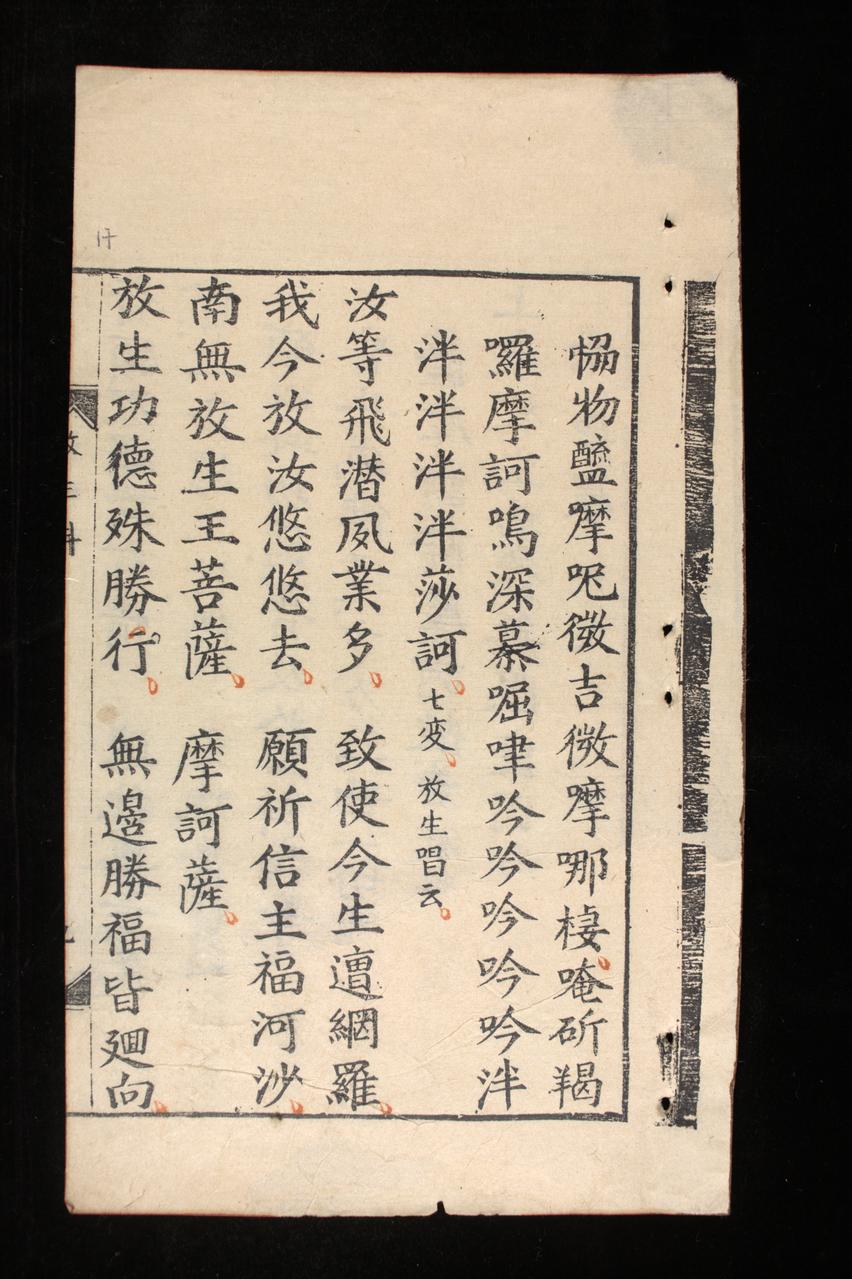 恊物𨤍摩呪微吉微摩哪棲唵斫羯
囉摩訶鳴深慕啒嗱吟吟吟吟吟泮
泮泮泮泮莎訶七変放生唱云
汝等飛潛夙業多 致使今生遭網羅
我今放汝悠悠去 願祈信主福河沙
南無放生王菩薩 摩訶薩
放生功德殊勝行 無邊勝福皆廻向
17